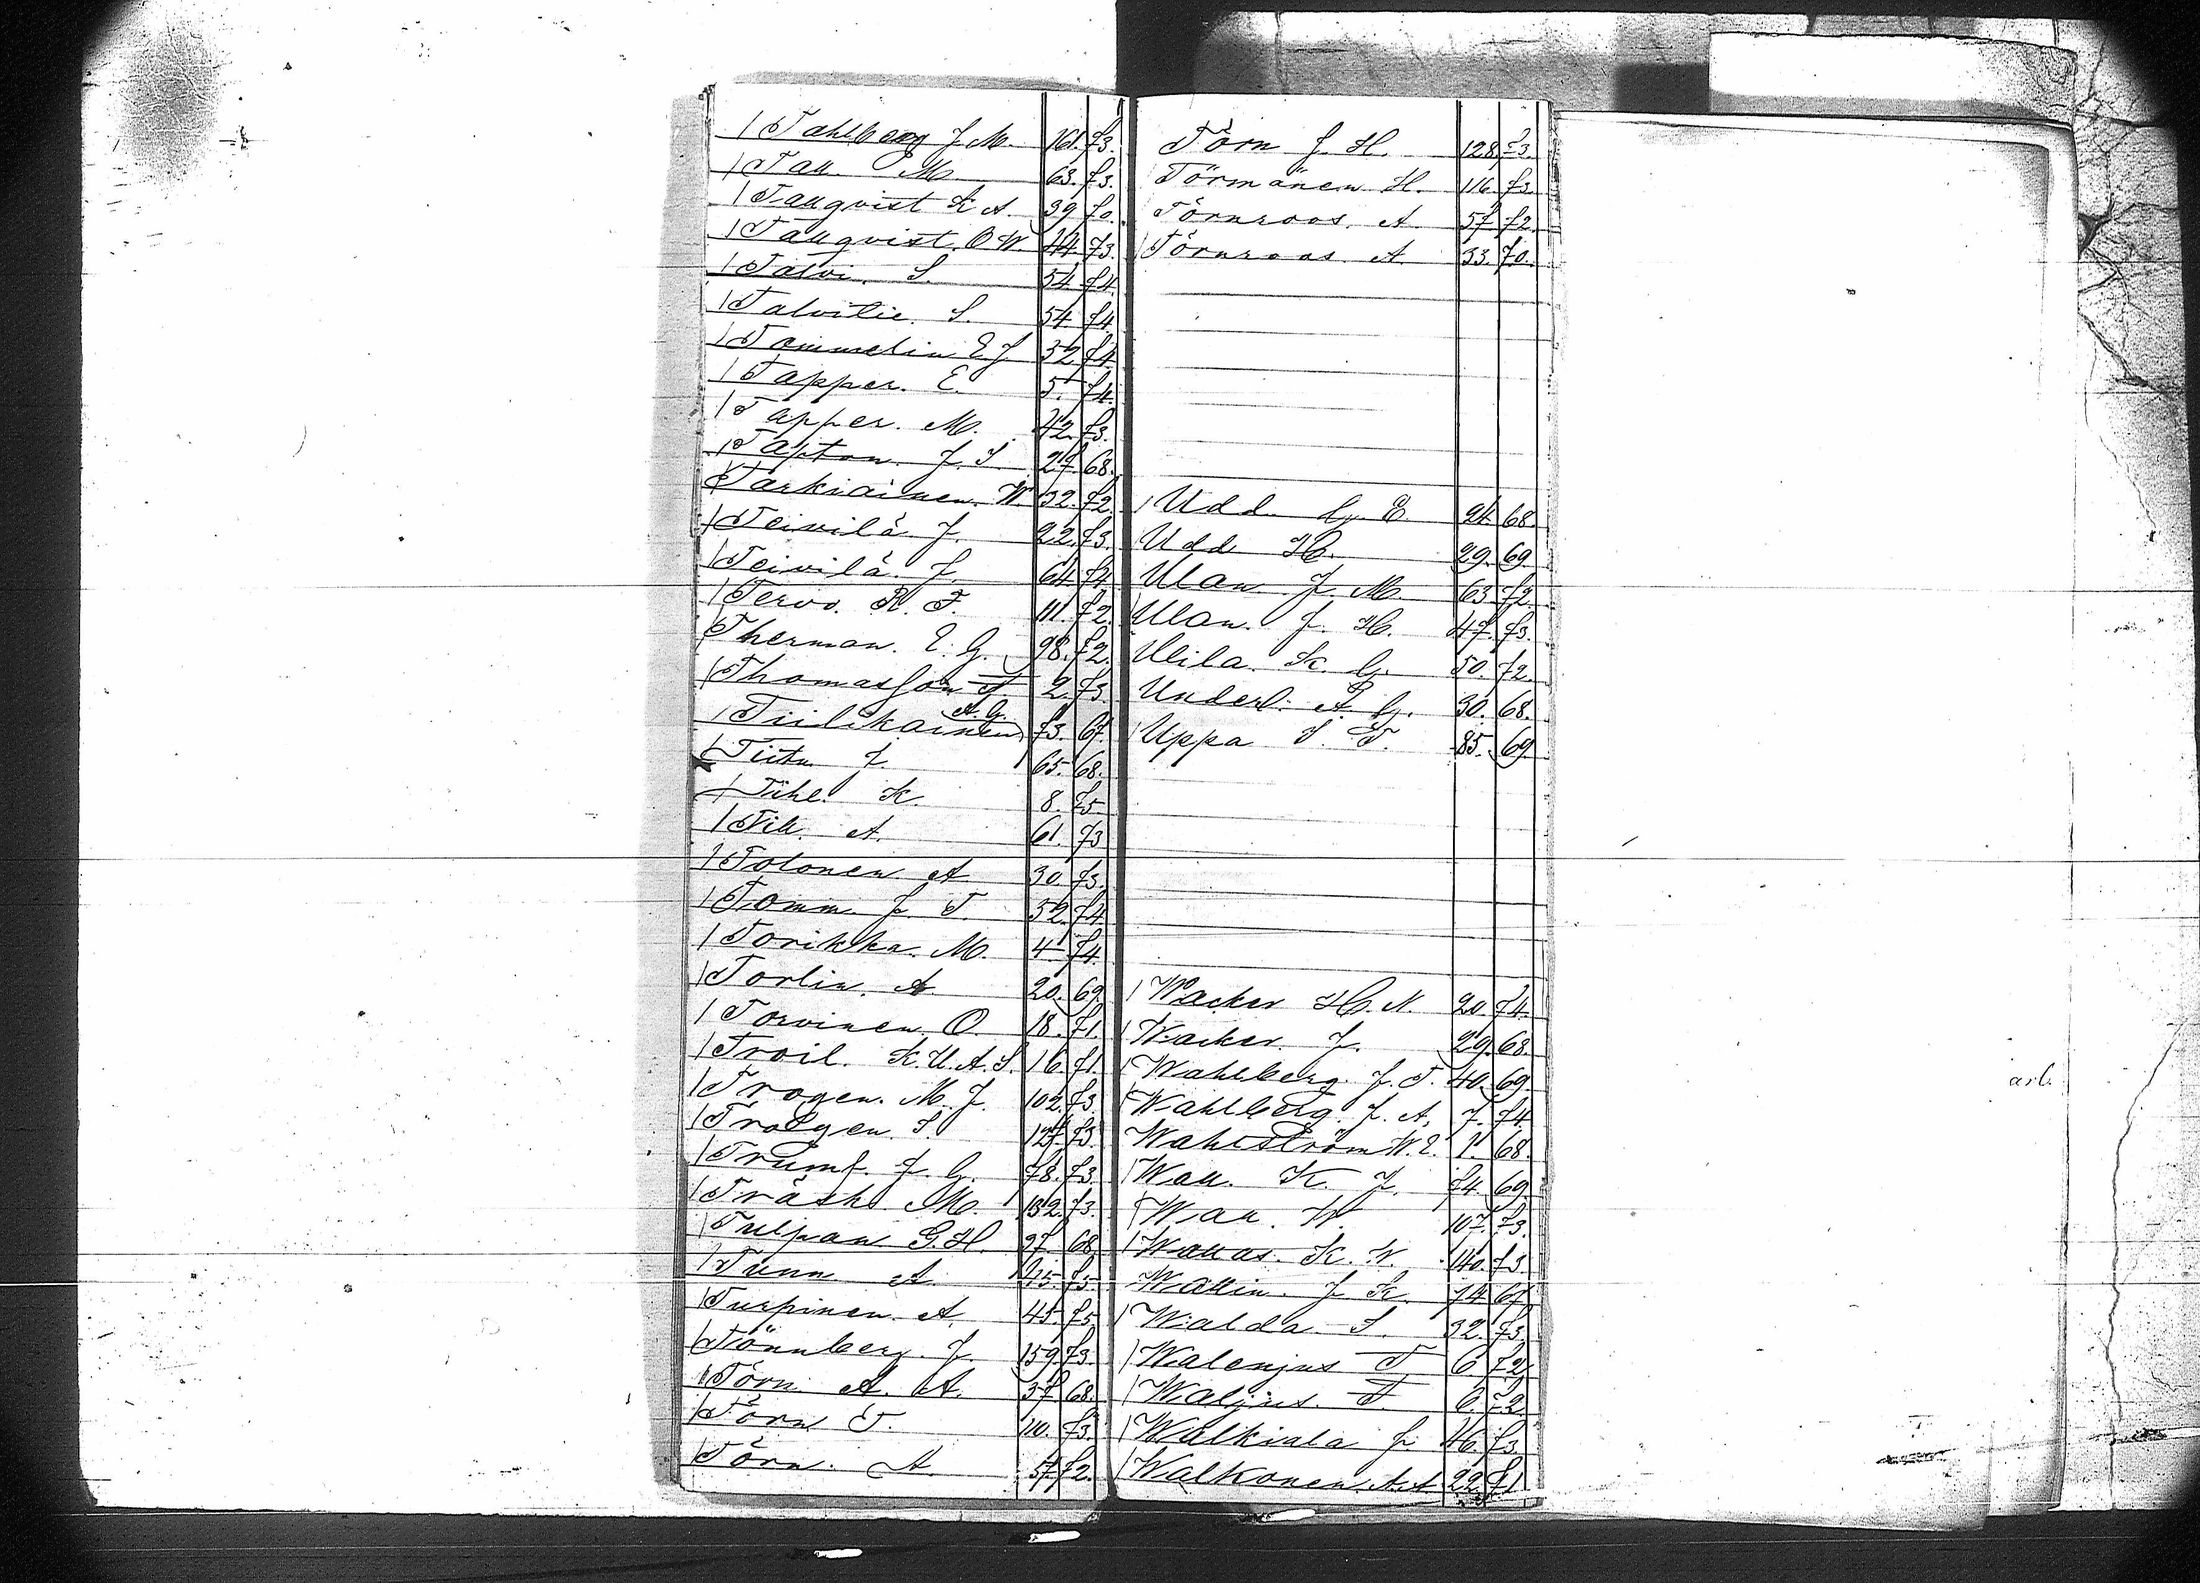 Tahlberg J. M. 161. 73.
Tall M. 63. 73.
Tallqvist K A. 39 70.
Tallqvist O W. 44. 73.
Talvi S. 54 74.
Talvitie. S. 54 74.
Tammelin E J 32 74
Tapper. E. 5. 74.
Tapper. M. 42. 73.
Tapton. J. S. 27. 68.
Tarkiainen. W. 32. 72.
Teivilä J. 22. 73.
Teivilä. J. 64 74
Tervo. R. F. 111. 72.
Therman. E. G. 98. 72.
Thomasson 2. 73.
Tiilikainen A. G. 73. 67.
Tiitu J. 65. 68.
Tihl. K. 8. 75
Till. A. 61. 73
Tolonen A 30. 73.
Tomm J. T. 52. 74
Torikka. M. 4 74.
Torlin. A. 20. 69.
Torvinen. O. 18. 71.
Troil. K. U. A. S. 16. 71.
Trogen. M. J. 102. 73.
Trolgen. S. 127. 73.
Trumf. J. G. 78. 73.
Träsk M. 132. 73.
Tulpan G. H. 97. 68
Tunn A. 45. 75
Turpinen. A. 45. 75
Tönnberg. J. 159. 73.
Törn A. A. 37 68.
Törn T. 110. 73.
Törn. A. 57 72.
Törn J. H. 128. 73.
Törmänen H. 116. 73.
Törnroos. A. 57 72.
Törnroos. A. 33. 70.
Udd. G. E. 24. 68
Udd H. 29. 69.
Ulan J. M. 63. 72.
Ulan. J. H. 47. 73.
Ulila. K. G. 50. 72.
Underl. A. G. 30. 68.
Uppa S. T. 85. 69.
Wacker H. N. 20. 74.
Wacker. J. 29. 68.
Wahlberg. J. T. 40. 69.
Wahlberg. J. A. 7. 74.
Wahlström W. E. 1. 68.
Wall. K. J. 74. 69.
Wall. W. 107. 73.
Wallas. K. W. 140. 73.
Wallin. J. K. 74 67.
Walda S. 32. 73.
Walenjus T 6 72.
Waljus. T 6. 72
Walkiala J. 46. 73.
Walkonen A. A 22. 71
arb.